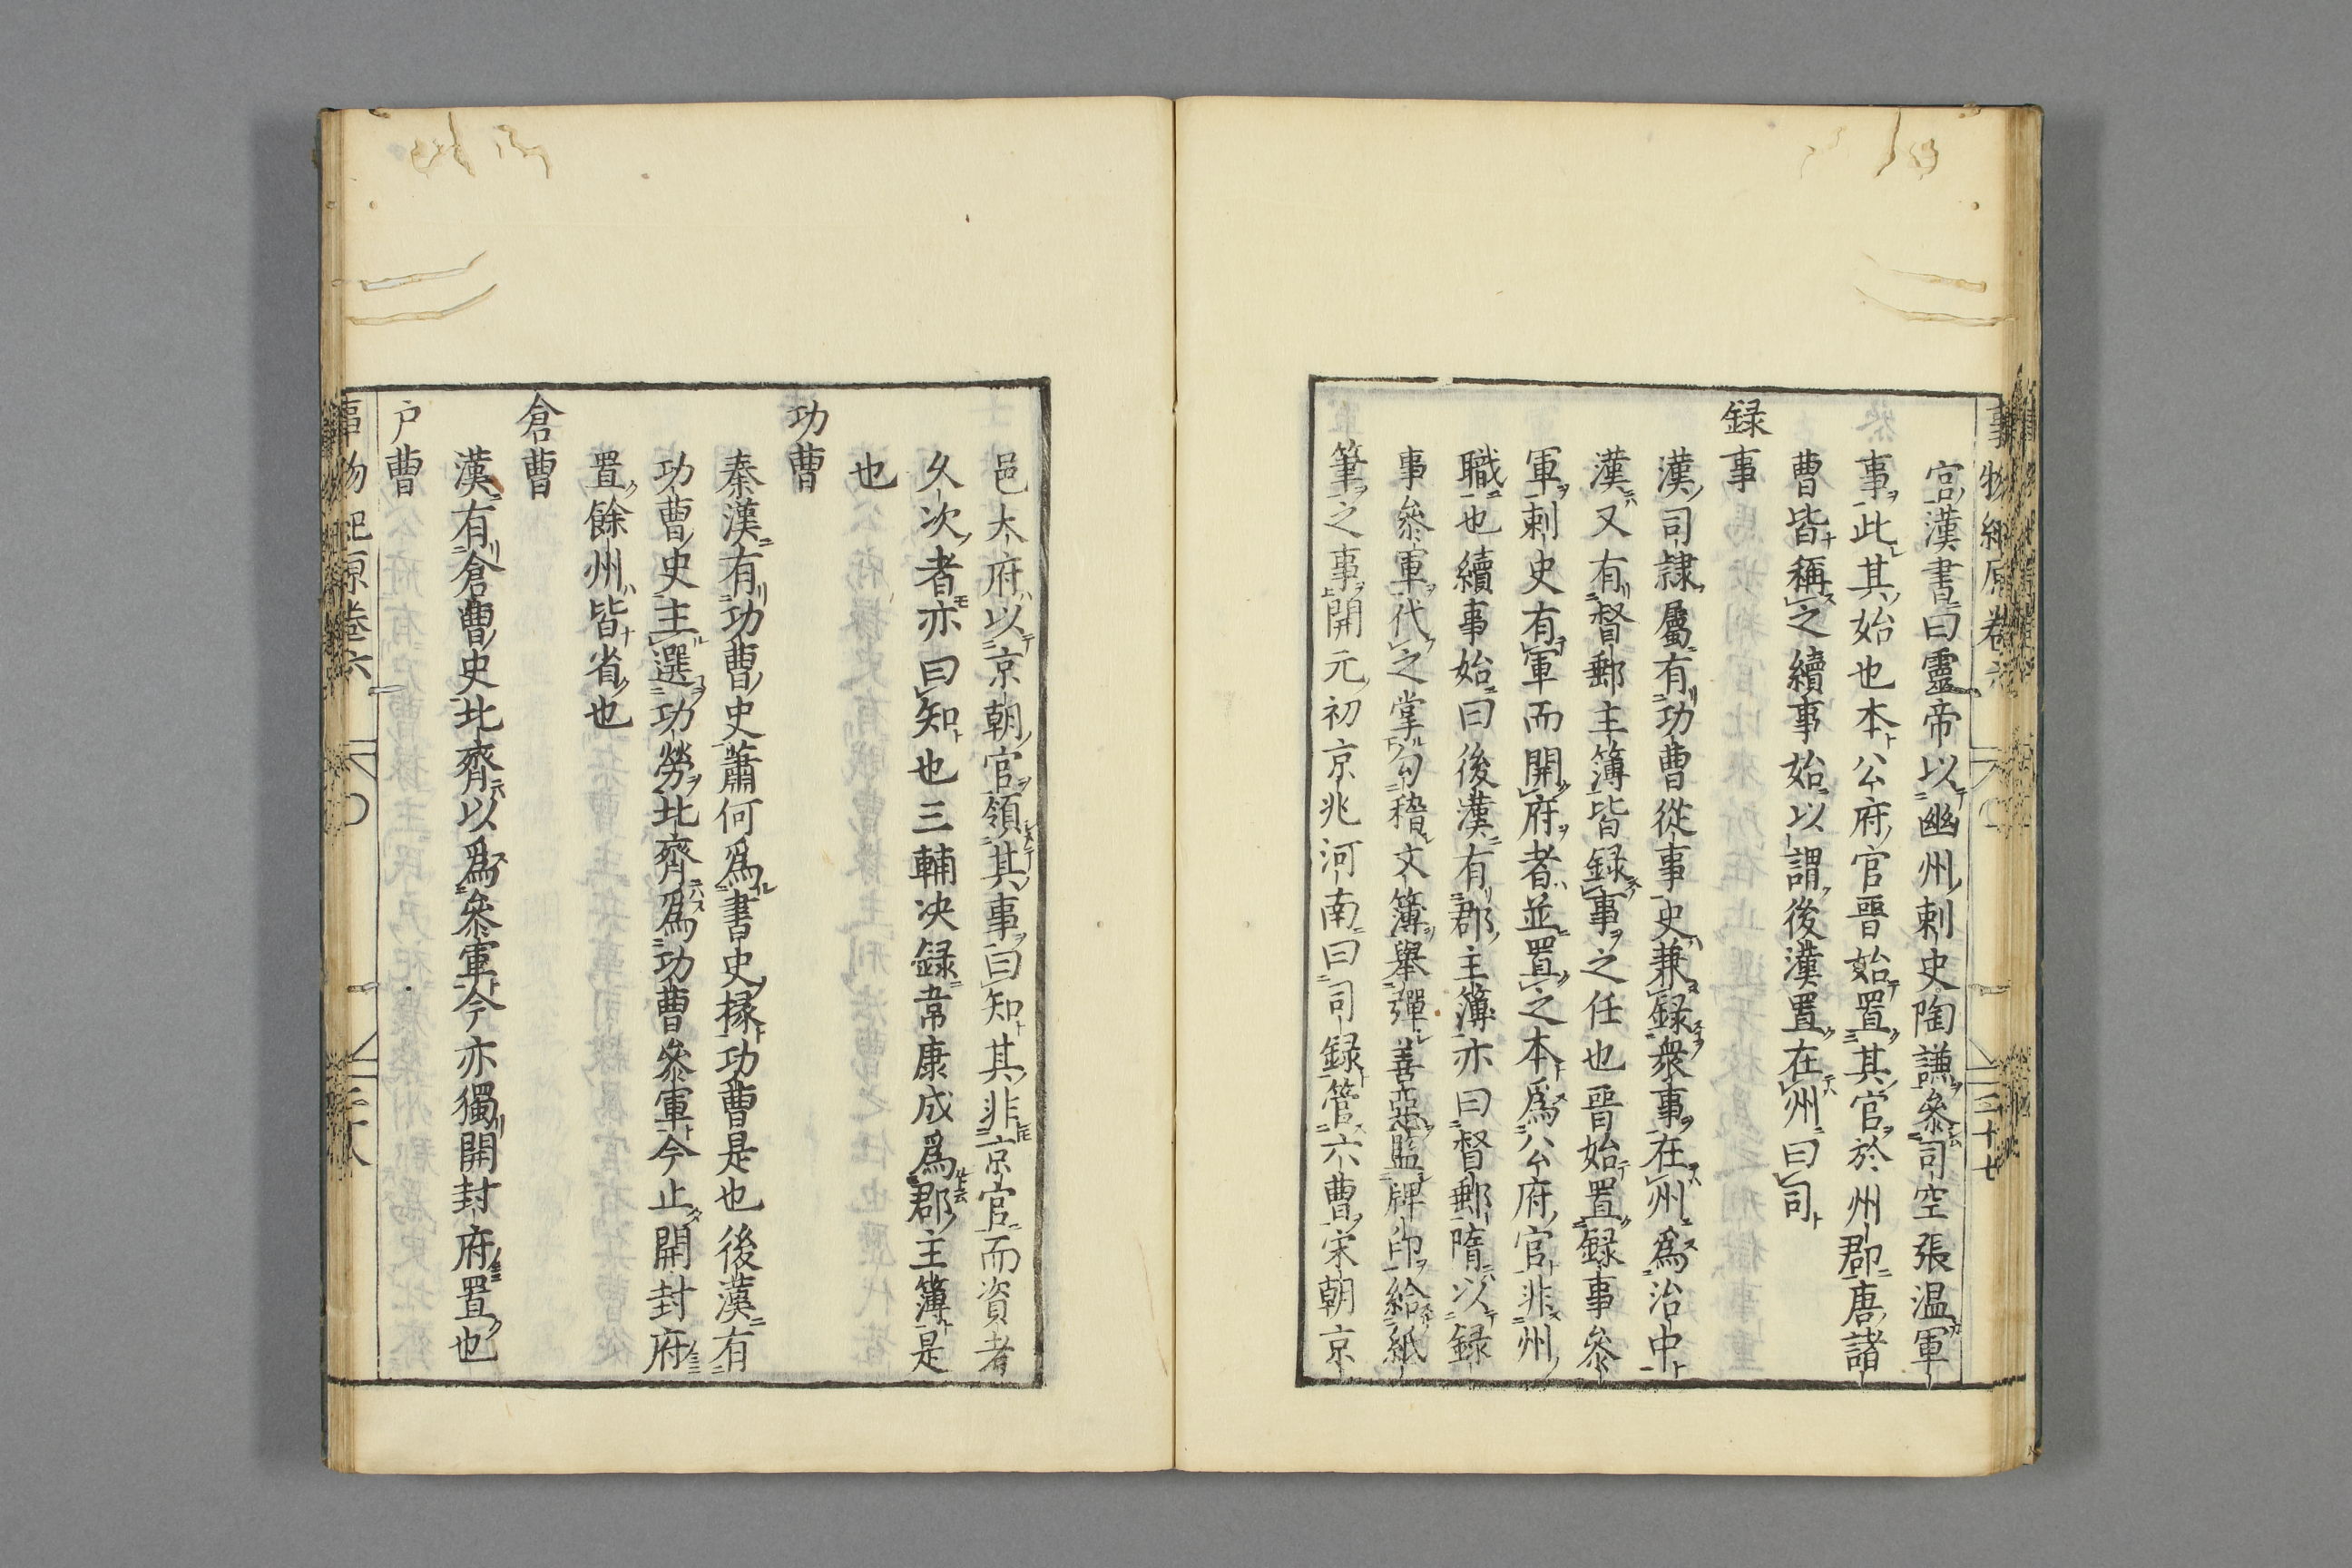 事物紀原卷六
三十七
官漢書曰靈帝以幽州刺史陶謙參司空張温軍
事此其始也本公府官晉始置其官於州郡唐諸
曹皆稱之續事始以謂後漢置在州曰司
録事
漢司隷屬有功曹從事史兼録衆事在州爲治中
漢又有督郵主簿皆録事之任也晉始置録事參
軍刺史有軍而開府者並置之本爲公府官非州
職也續事始曰後漢有郡主簿亦曰督郵隋以録
事參軍代之掌勾稽文簿舉彈善惡監牌印給紙
筆之事開元初京兆河南曰司録管六曹宋朝京
邑大府以京朝官領其事曰知其非京官而資者
久次者亦曰知也三輔决録韋康成爲郡主簿是
也
功曹
秦漢有功曹史蕭何爲書史掾功曹是也後漢有
功曹史主選功勞北齊爲功曹參軍今止開封府
置餘州皆省也
倉曹
漢有倉曹史北齊以爲參軍今亦獨開封府置也
户曹
事物紀原卷六